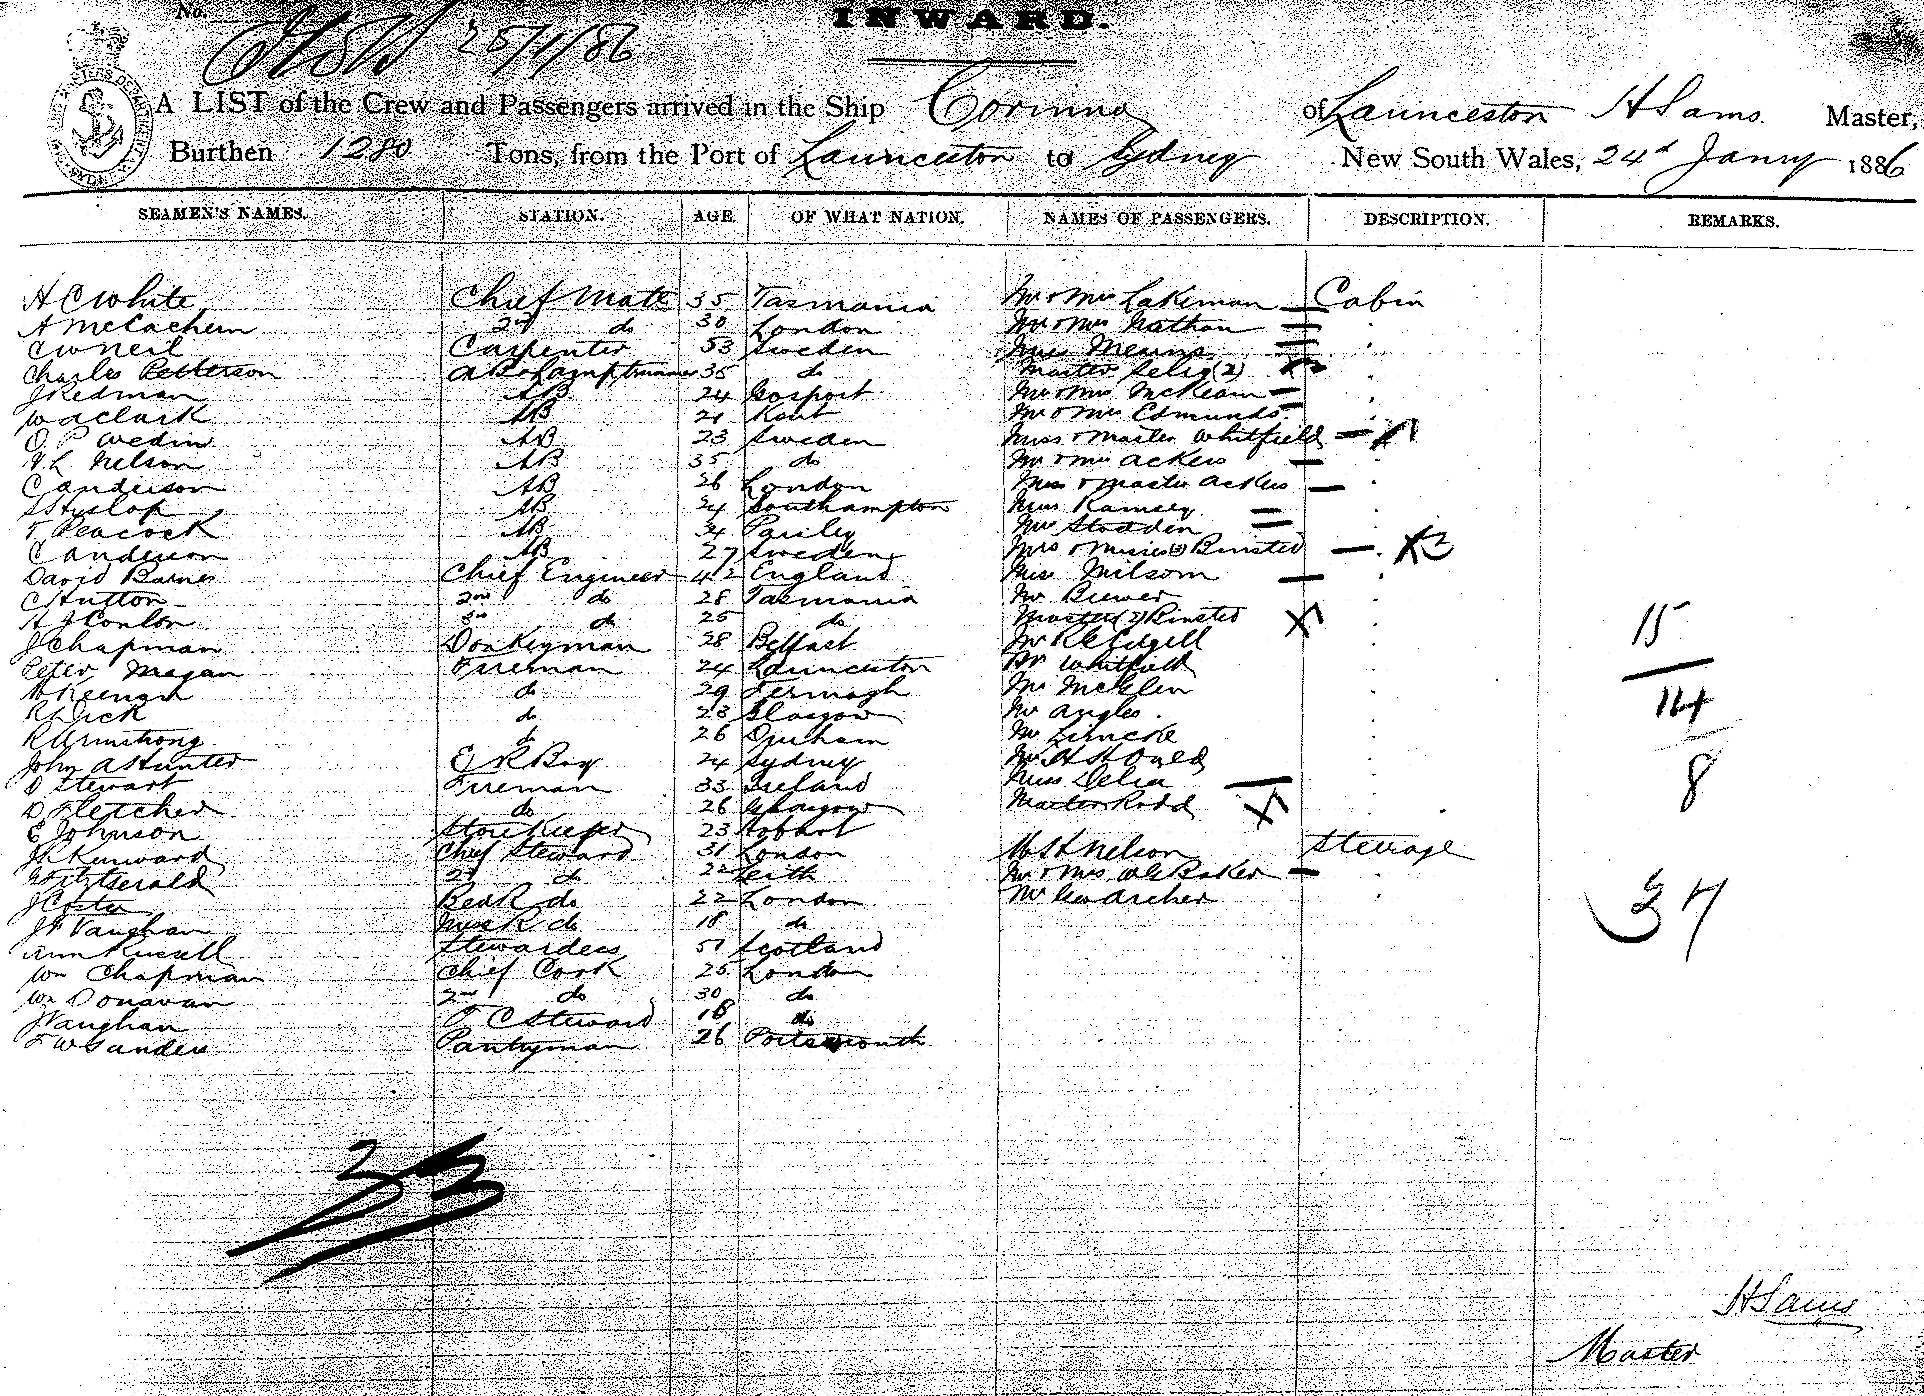 No.
INWARD.
25/1/86
A LIST of the Crew and Passengers arrived in the Ship Corinna of Launceston H Sams. Master,
Burthen 1280 Tons, from the Port of Launceston to Sydney New South Wales, 24th Janry 1886
SEAMEN'S NAMES. STATION. AGE OF WHAT NATION. NAMES OF PASSENGERS. DESCRIPTION. REMARKS.
H C White Chief Mate 35 Tasmania Mr & Mrs Lakeman Cabin
A McEachern 2nd do 30 London Mr & Mrs Nathan
C W Neil Carpenter 53 Sweden Mearns
Charles Petterson AB & Lamptrimmer 35 do Master Selig (2)
J Redman AB 24 Gosport Mr & Mrs McKean
W A Clark AB 21 Kent Mr & Mrs Edmunds
O P Wedin AB 23 Sweden Miss & Master Whitfield
Nelson AB 35 do Mr & Mrs Ackers
C Anderson AB 26 London Miss & Master Ackers
S Hyslop AB 24 Southampton Ramsey
T Peacock AB 34 Paisley
C Anderson AB 27 Sweden Mrs & Misses (3) Binsted
David Barnes Chief Engineer 42 England Miss Milsom
C Hutton 2nd do 28 Tasmania Mr Brewer
H J Conlon 3rd do 25 do Master (2) Binsted
J Chapman Donkeyman 28 Belfast Mr R E Edgell
Peter Meagan Fireman 24 Launceston Dr Whitfield
Keenan do 29 Fermagh Mr
R Dick do 23 Glasgow Mr Angles
R Armstrong do 26 Durham Mr
John A Hunter E R Boy 24 Sydney Mr H H Ould
D Stewart Fireman 33 Ireland Miss Delia
D Fletcher do 26 Glasgow Master Rodd
E Johnson Storekeeper 23 Hobart
J Kenward Chief Steward 31 London Nelson Steerage
Fitzgerald 2d do 22 Leith Mr & Mrs W G Baker
J Coster Bedr do 22 London Mr Geo Archer
J F Vaughan do 18 do
Ann Russell Stewardess 51 Scotland
Wm Chapman Chief Cook 25 London
Wm Donavan 2nd do 30 do
J Vaughan F C Steward 18 do
F W Sanders Pantryman 26 Portsmouth
15
14
8
37
33
H Sams
Master